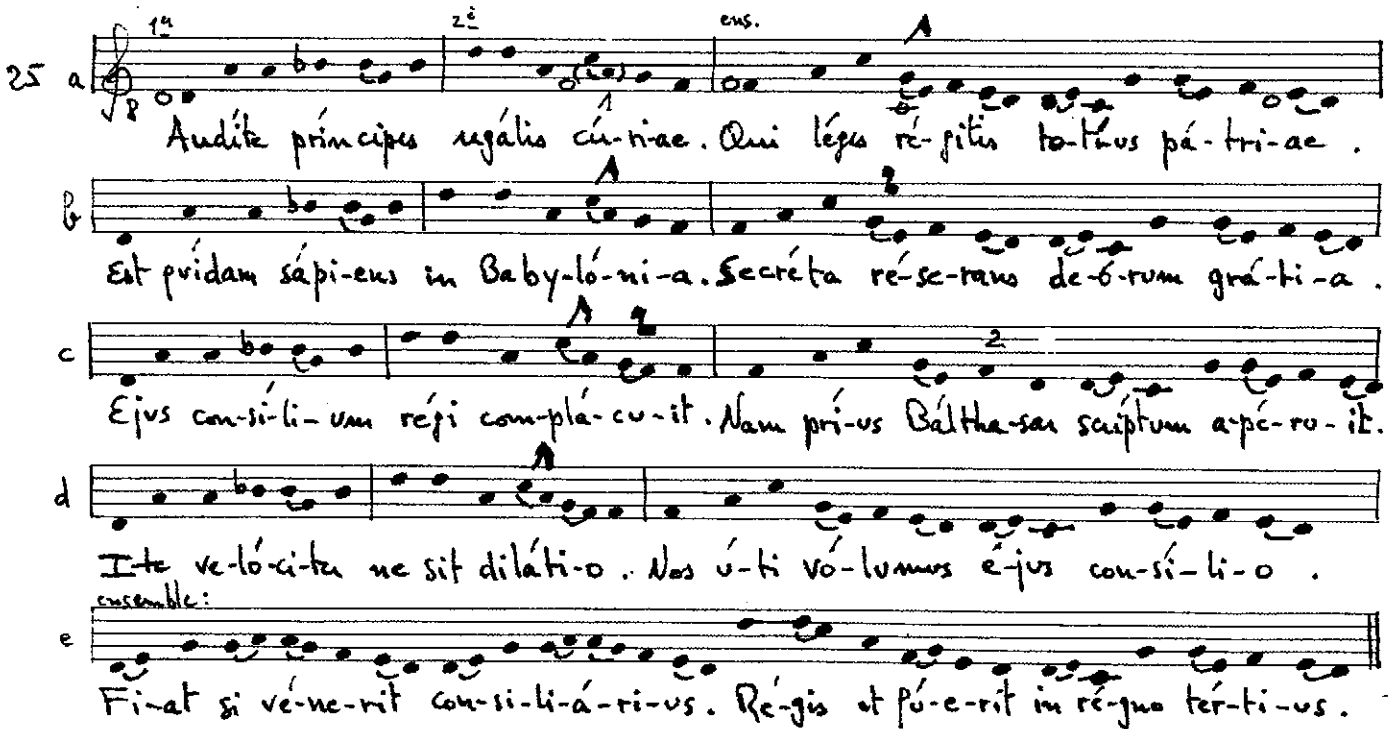 1a 2e ens.
25 a
Audíte príncipes regális cú-ri-ae. Qui léges ré-gitis to-tíus pá-tri-ae.
b
Est qvidam sápi-ens in Baby-ló-ni-a. Secréta ré-se-rans de-ó-rum grá-ti-a.
c 2
Ejvs con-sí-li-um régi com-plá-cu-it. Nam prí-us Báltha-sar scríptum a-pé-ru-it.
d
I-te ve-ló-ci-ter ne sit diláti-o. Nos ú-ti vó-lumus é-jvs con-sí-li-o.
ensemble:
e
Fi-at si vé-ne-rit con-si-li-á-ri-us. Ré-gis et fú-e-rit in ré-gno tér-ti-us.